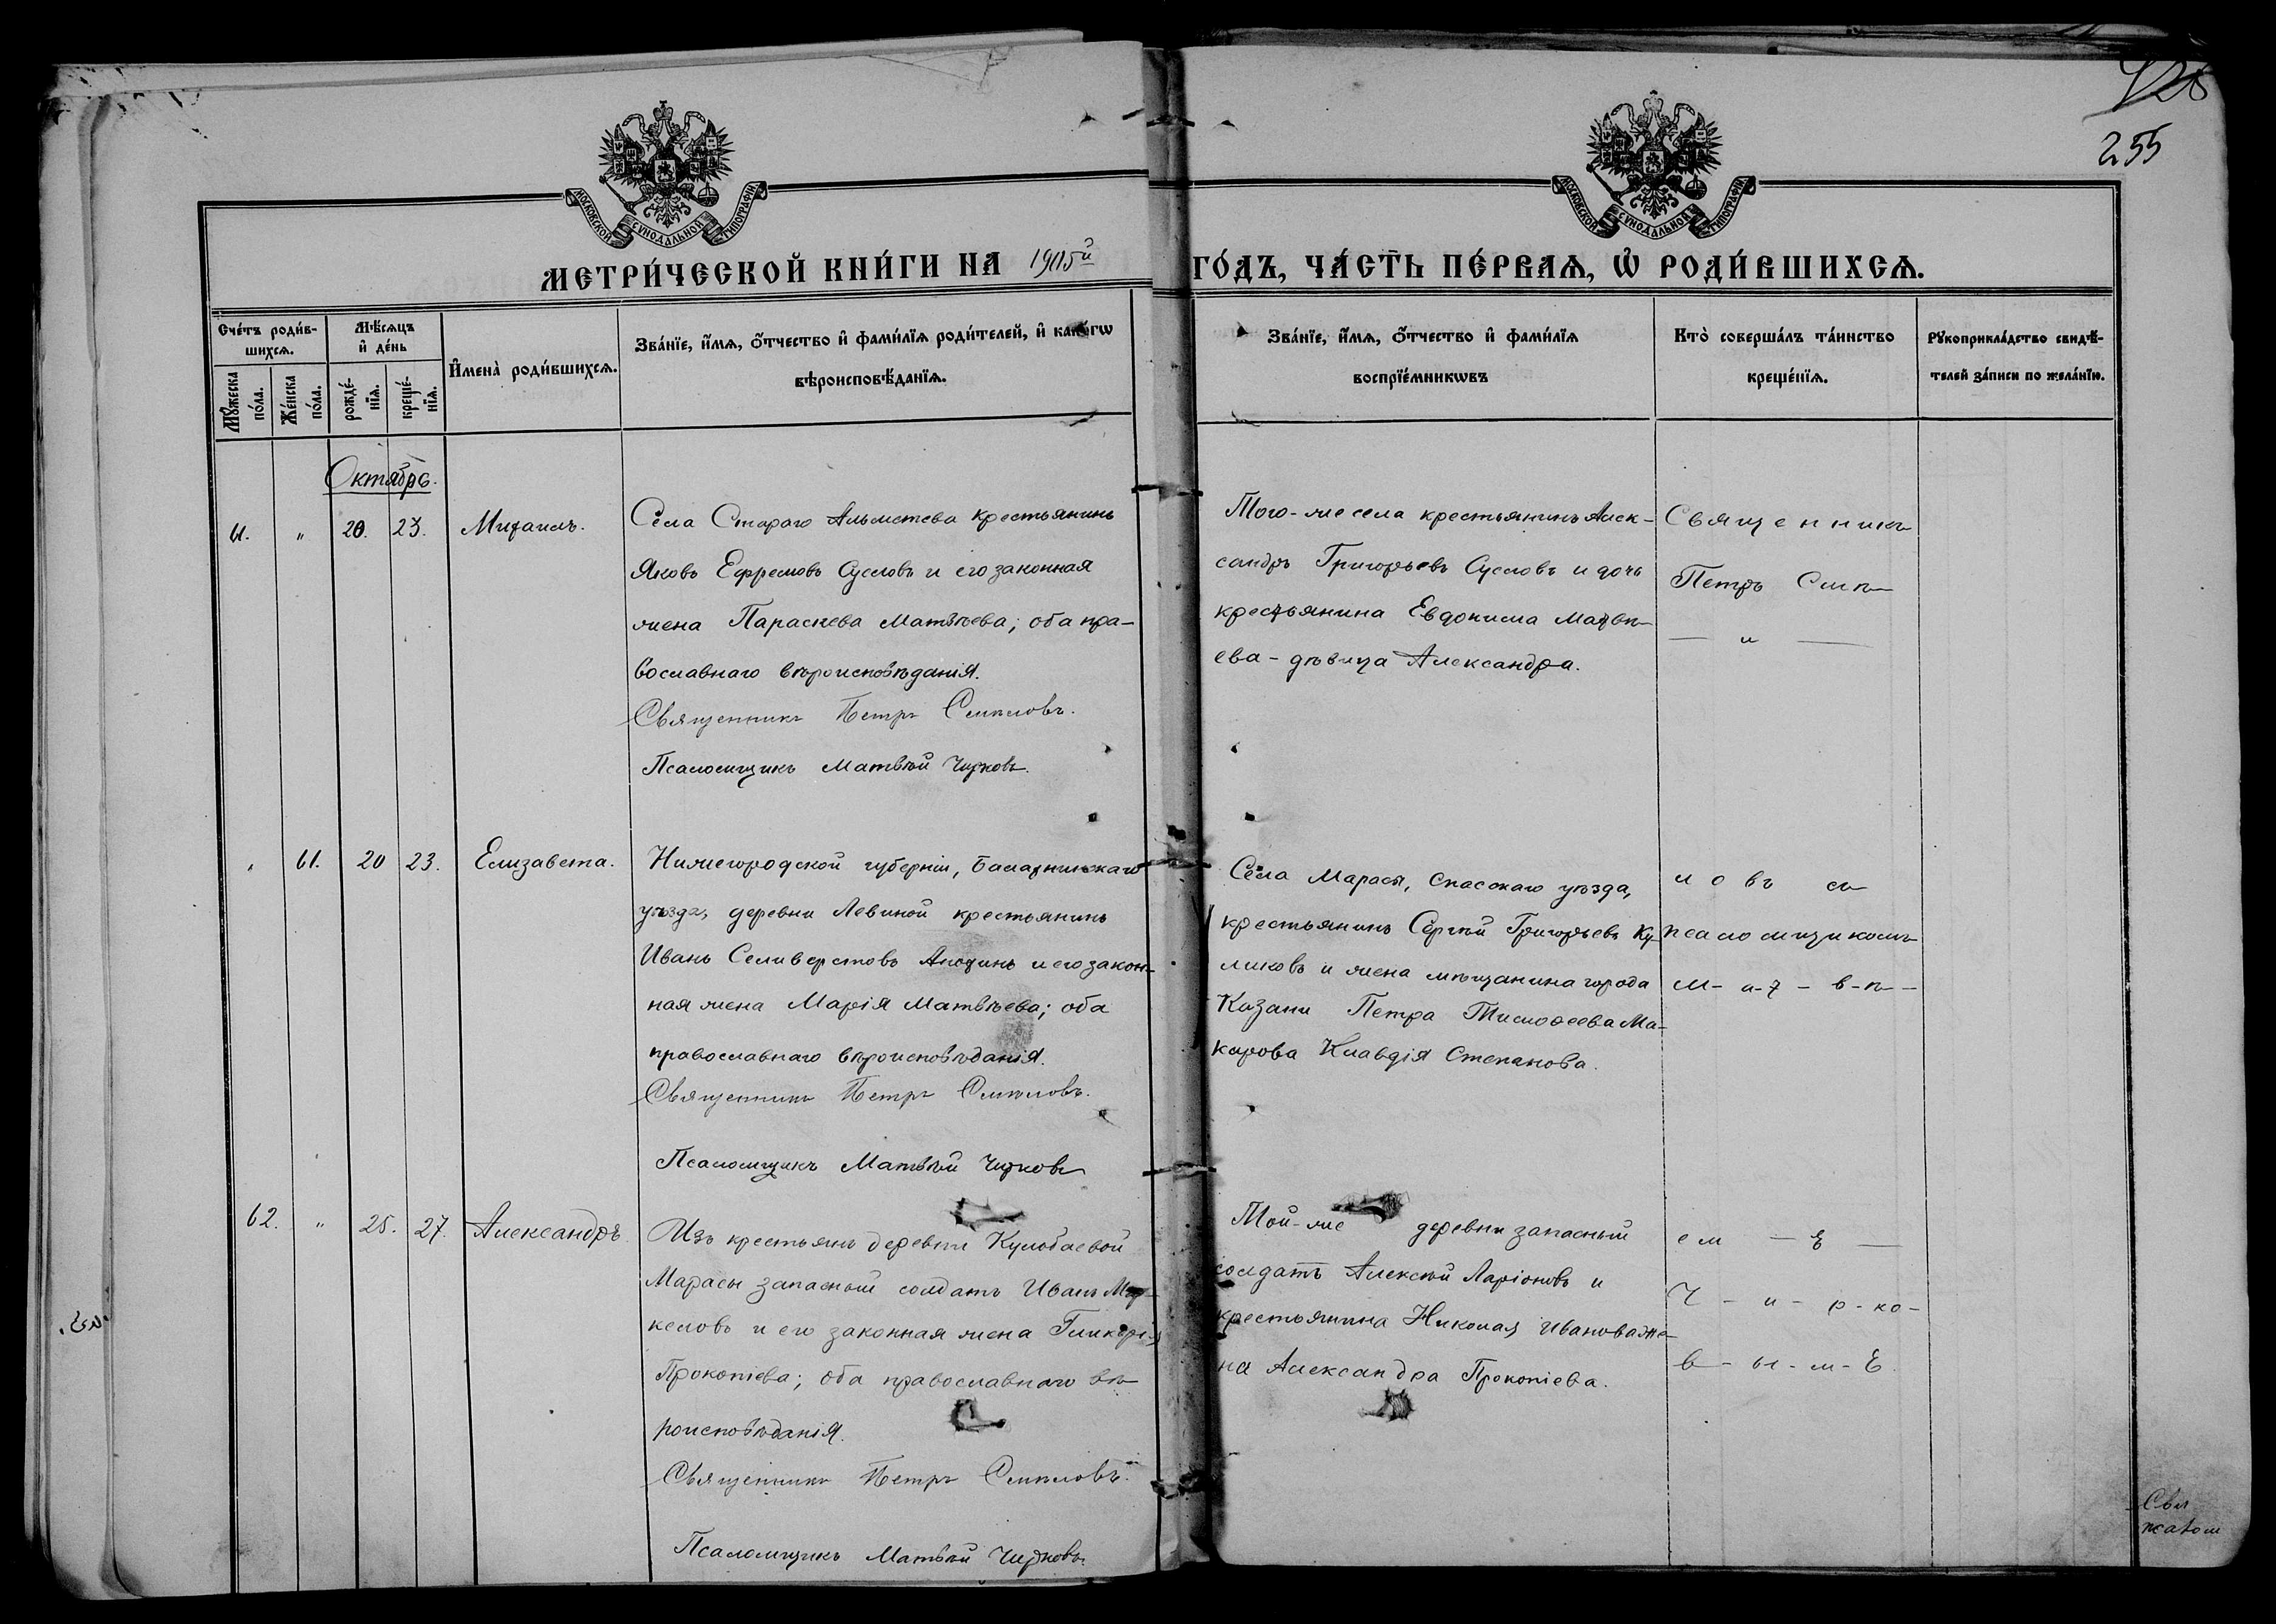 255
МОСКОВСКОЙ СУНОДАЛЬНОЙ ТИПОГРАФІИ
МОСКОВСКОЙ СУНОДАЛЬНОЙ ТИПОГРАФІИ
МЕТРИ́ЧЕСКОЙ КНИ́ГИ НА 1905й ГО́ДЪ, ЧА́СТЬ ПЕ́РВАѦ, Ѡ РОДИ́ВШИХСѦ.
Сче́тъ роди́в-
шихсѧ.
Мѣ́сѧцъ
и҆ де́нь
Мꙋ́жеска по́ла.
Же́нска по́ла.
рожде́-
нїѧ.
креще́-
нїѧ.
И҆мена̀ роди́вшихсѧ.
Зва́нїе, и҆́мѧ, ѻ҆́тчество и҆ фами́лїѧ роди́телей, и҆ како́гѡ
вѣроисповѣ́данїѧ.
Зва́нїе, и҆́мѧ, ѻ҆́тчество и҆ фами́лїѧ
воспрїе́мникѡвъ
Кто̀ соверша́лъ та́инство
креще́нїѧ.
Рꙋкоприкла́дство свидѣ́-
телей за́писи по жела́нїю.
Октябрь.
61. " 20. 23. Михаилъ.
Села Стараго Альметева крестьянинъ
Яковъ Ефремовъ Сусловъ и его законная
жена Параскева Матвѣева; оба пра-
вославнаго вѣроисповѣданія.
Священникъ Петръ Смѣловъ.
Псаломщикъ Матвѣй Чирковъ.
Того-же села крестьянинъ Алек-
сандръ Григорьевъ Сусловъ и дочь
крестьянина Евдокима Матвѣ-
ева - дѣвица Александра.
Священникъ
Петръ Смѣ-
— и —
" 61. 20 23. Елизавета.
Нижегородской губерніи, Балахнинскаго
уѣзда, деревни Левиной крестьянинъ
Иванъ Селиверстовъ и его закон-
ная жена Марія Матвѣева; оба
православнаго вѣроисповѣданія.
Священникъ Петръ Смѣловъ.
Псаломщикъ Матвѣй Чирковъ
Села Марасы, Спасскаго уѣзда,
крестьянинъ Сергѣй Григорьевъ Ку-
ликовъ и жена мѣщанина города
Казани Петра Тимоѳеева Ма-
карова Клавдія Степанова.
ловъ съ
псаломщикомъ
М-а-т-в-ѣ-
62. " 25. 27. Александръ.
Изъ крестьянъ деревни Кулобаевой
Марасы запасный солдатъ Иванъ Мар-
келовъ и его законная жена Гликерія
Прокопіева; оба православнаго вѣ-
роисповѣданія.
Священникъ Петръ Смѣловъ.
Псаломщикъ Матвѣй Чирковъ.
Той-же деревни запасный
солдатъ Алексѣй Ларіоновъ и
крестьянина Николая Иванова же-
на Александра Прокопіева.
ем — ъ —
Ч - и - р - ко -
в - ы - м - ъ.
Свя
псалом